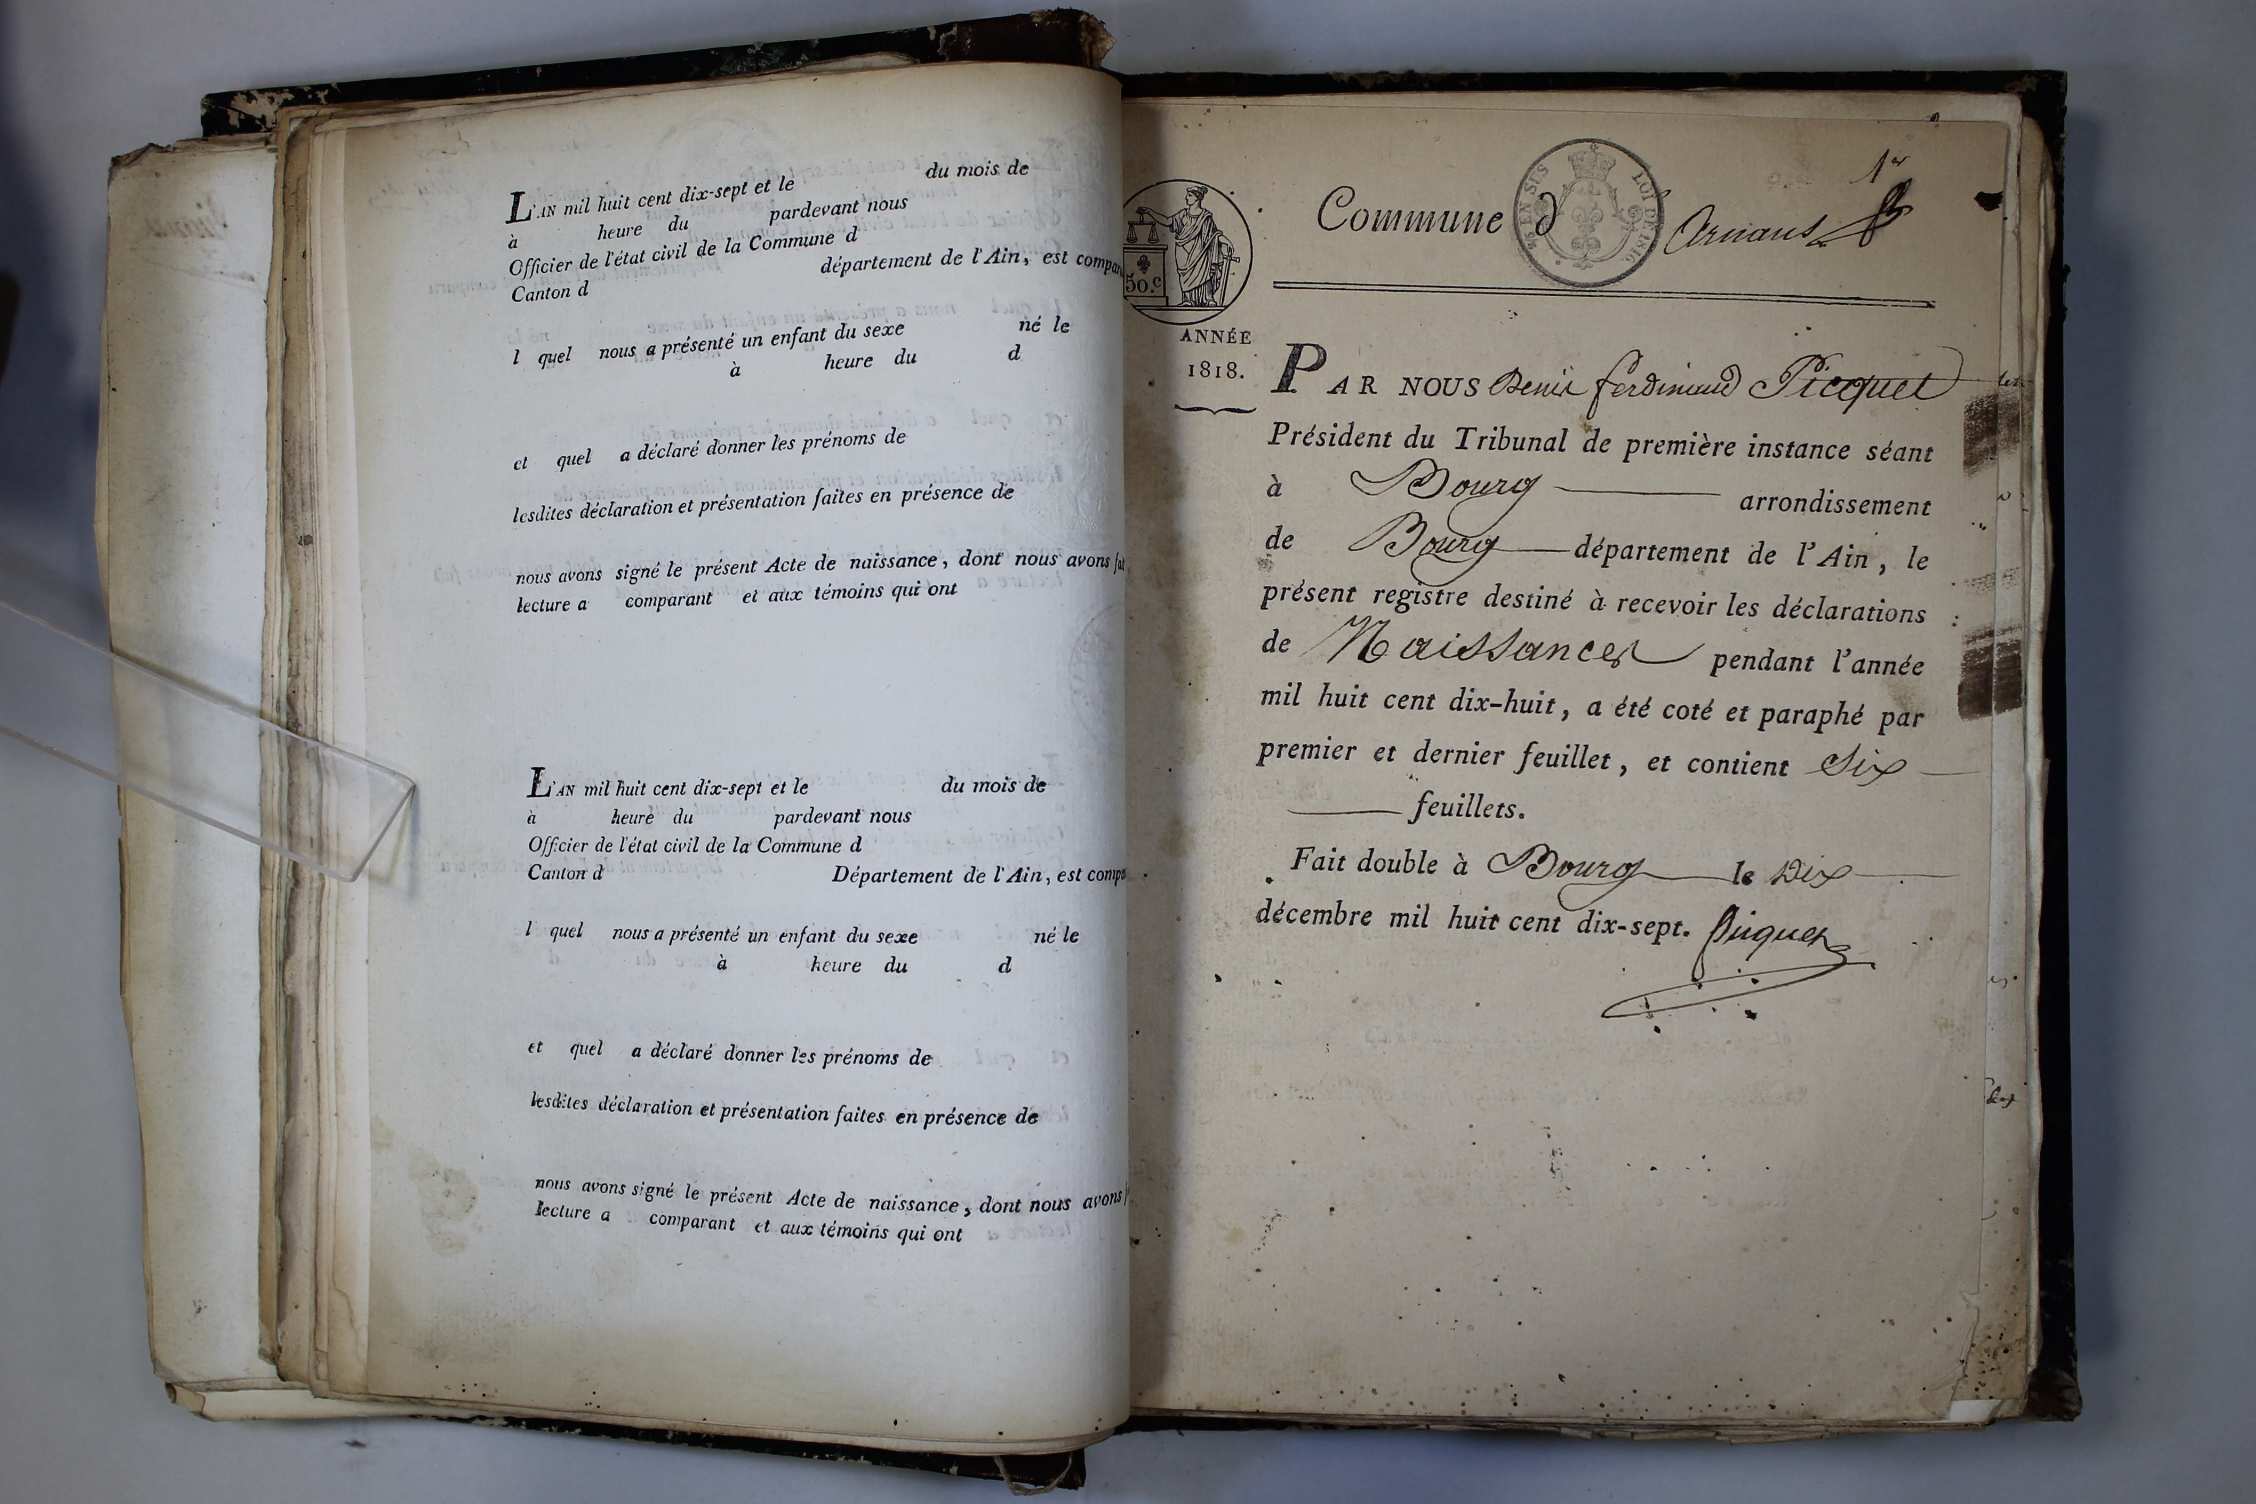 L'AN mil huit cent dix-sept et le du mois de
à heure du pardevant nous
Officier de l'état civil de la Commune d
Canton d département de l'Ain, est compar
l quel nous a présenté un enfant du sexe né le
à heure du d
et quel a déclaré donner les prénoms de
lesdites déclaration et présentation faites en présence de
nous avons signé le présent Acte de naissance, dont nous avons fai
lecture a comparant et aux témoins qui ont
L'AN mil huit cent dix-sept et le du mois de
à heure du pardevant nous
Officier de l'état civil de la Commune d
Canton d Département de l'Ain, est compa
l quel nous a présenté un enfant du sexe né le
à heure du d
et quel a déclaré donner les prénoms de
lesdites déclaration et présentation faites en présence de
nous avons signé le présent Acte de naissance, dont nous avons f
lecture a comparant et aux témoins qui ont
1er
Commune d Arnans
LOI DE 1816
50.c
ANNÉE
1818.
PAR NOUS Denis ferdinand Picquet
Président du Tribunal de première instance séant
à Bourg arrondissement
de Bourg département de l'Ain, le
présent registre destiné à recevoir les déclarations
de Naissances pendant l'année
mil huit cent dix-huit, a été coté et paraphé par
premier et dernier feuillet, et contient Six
feuillets.
Fait double à Bourg le Dix
décembre mil huit cent dix-sept. Picquet